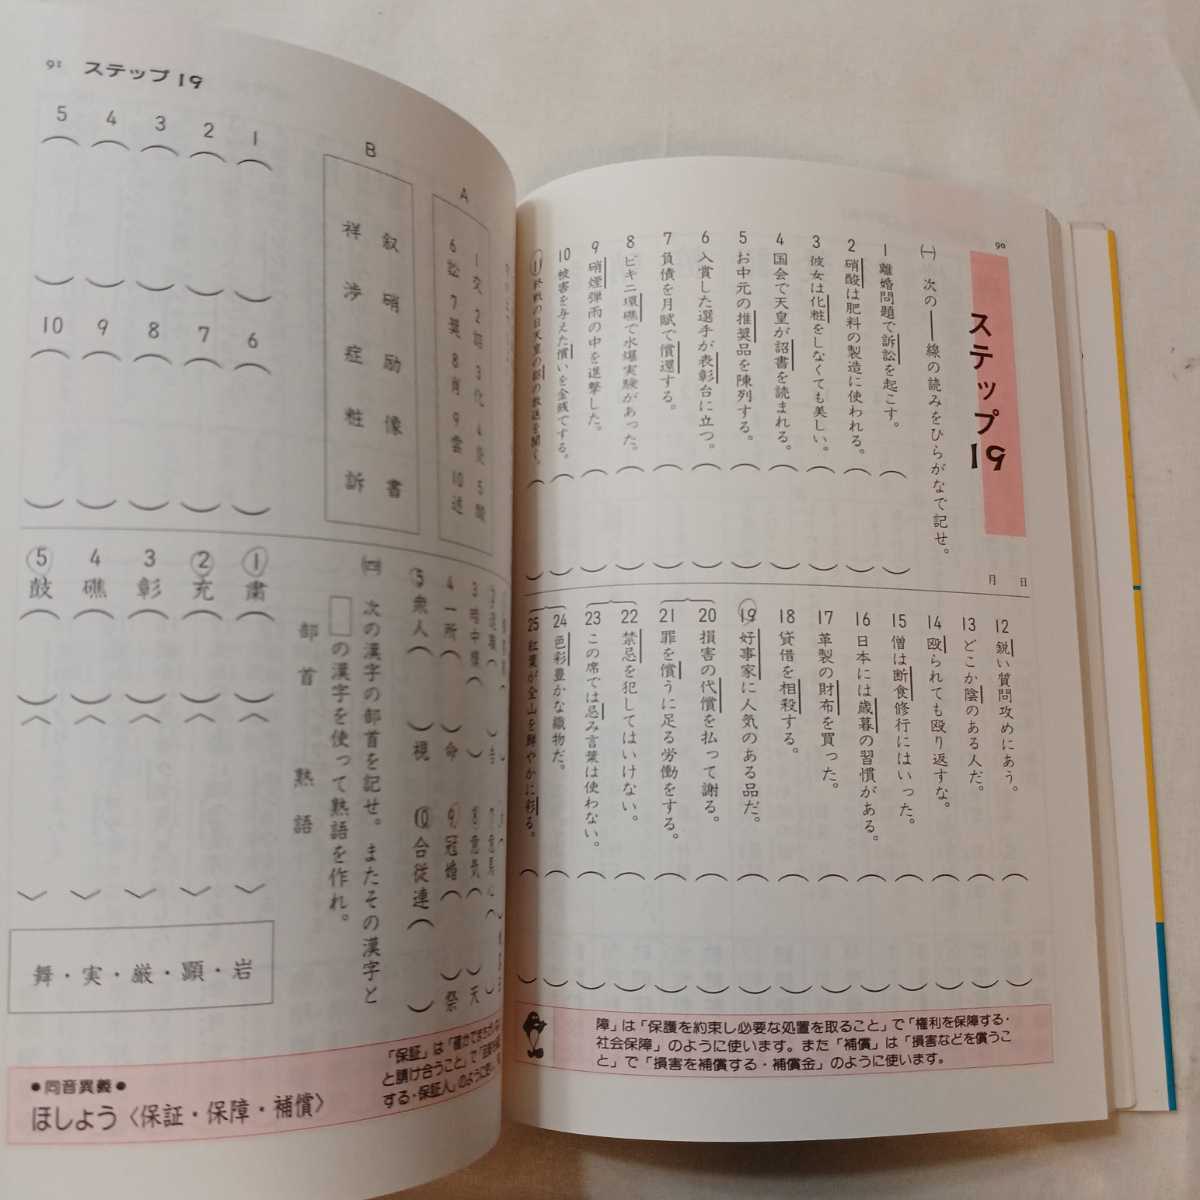 90
ステップ19
月 日
㈠ 次の━━線の読みをひらがなで記せ。
1 離婚問題で訴訟を起こす。
2 硝酸は肥料の製造に使われる。
3 彼女は化粧をしなくても美しい。
4 国会で天皇が詔書を読まれる。
5 お中元の推奨品を陳列する。
6 入賞した選手が表彰台に立つ。
7 負債を月賦で償還する。
8 ビキニ環礁で水爆実験があった。
9 硝煙弾雨の中を進撃した。
10 被害を与えた償いを金銭でする。
11 終戦の日天皇の詔の放送を聞く。
12 鋭い質問攻めにあう。
13 どこか陰のある人だ。
14 殴られても殴り返すな。
15 僧は断食修行にはいった。
16 日本には歳暮の習慣がある。
17 革製の財布を買った。
18 貸借を相殺する。
19 好事家に人気のある品だ。
20 損害の代償を払って謝る。
21 罪を償うに足る労働をする。
22 禁忌を犯してはいけない。
23 この席では忌み言葉は使わない。
24 色彩豊かな織物だ。
25 紅葉が全山を鮮やかに彩る。
障」は「保護を約束し必要な処置を取ること」で「権利を保障する・
社会保障」のように使います。また「補償」は「損害などを償うこ
と」で「損害を補償する・補償金」のように使います。
91 ステップ19
A
1 交 2 詔 3 化 4 5
6 訟 7 奨 8 肖 9 雲 10
B
叙 硝 励 像 書
祥 渉 症 粧 訴
1
2
3
4
5
6
7
8
9
10
3 暗中模
4 一所 命
5 衆人 視
8 意気 天
9 冠婚 祭
10 合従連
㈣ 次の漢字の部首を記せ。またその漢字と
□の漢字を使って熟語を作れ。
部首 熟語
1 粛
2 充
3 彰
4 礁
5 鼓
舞・実・厳・顕・岩
●同音異義●
ほしょう〈保証・保障・補償〉
「保証」は「確かでまちがいない
と請け合うこと」で
する・保証人」のように使い